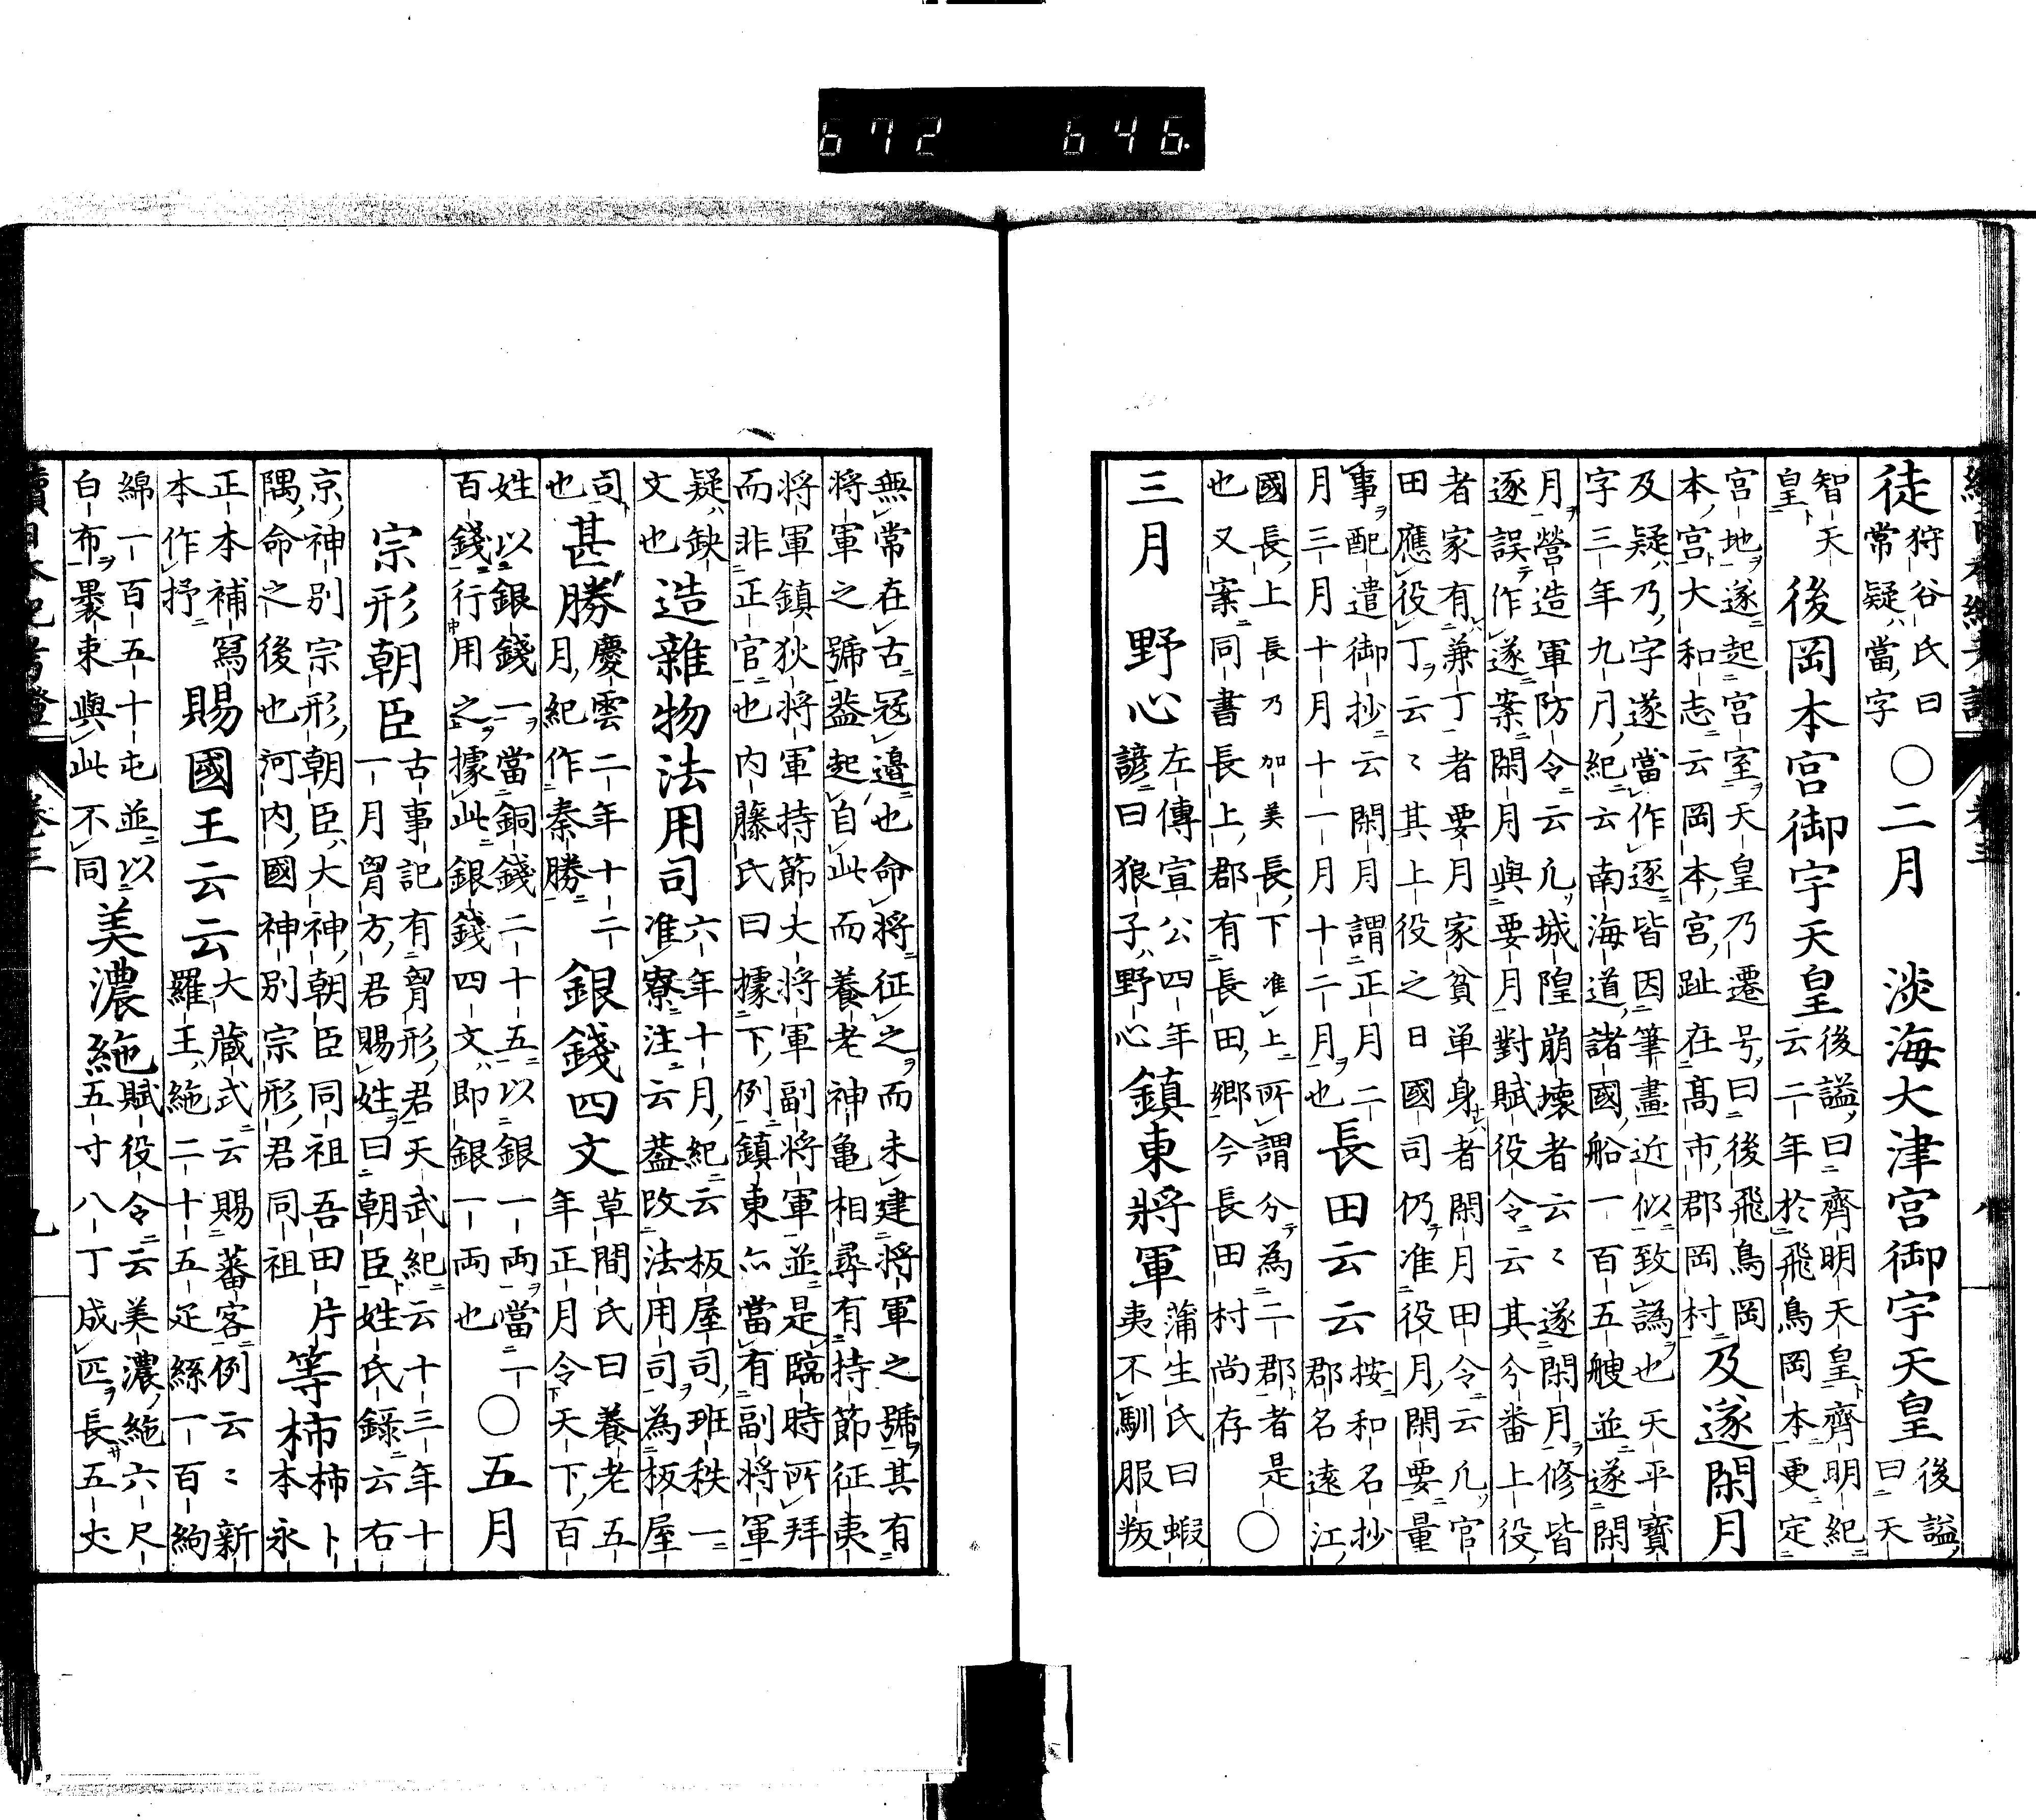 徒
狩谷氏曰
常疑當字
○二月　淡海大津宮御宇天皇
後謚
曰天
智天
皇
後岡本宮御宇天皇
後謚曰齊明天皇齊明紀
云二年於飛鳥岡本更定
宮地遂起宮室天皇乃遷号曰後飛鳥岡
本宮大和志云岡本宮趾在髙市郡岡村
及遂閑月
及疑乃字遂當作逐皆因筆畫近似致譌也天平寶
字三年九月紀云南海道諸國船一百五艘並遂閑
月營造軍防令云凡城隍崩壊者云〻遂閑月修皆
逐誤作遂案閑月與要月對賦役令云其分番上役
者家有兼丁者要月家貧単身者閑月田令云凡官
田應役丁云〻其上役之日國司仍准役月閑要量
事配遣御抄云閑月謂正月二
月三月十月十一月十二月也
長田云云
按和名抄
郡名遠江
國長上長乃加美長下准上所謂分為二郡者是
也又案同書長上郡有長田郷今長田村尚存
○
三月　野心
左傳宣公四年
諺曰狼子野心
鎮東將軍
蒲生氏曰蝦
夷不馴服叛
無常在古冦邉也命将征之而未建将軍之號其有
将軍之號葢起自此而養老神亀相尋有持節征夷
将軍鎮狄将軍持節大将軍副将軍並是臨時所拜
而非正官也内藤氏曰據下例鎮東亦當有副将軍
疑缺
文也
造雜物法用司
六年十月紀云板屋司班秩一
准寮注云葢改法用司為板屋
司
也
甚勝
慶雲二年十二
月紀作秦勝
銀錢四文
草間氏曰養老五
年正月令天下百
姓以銀錢一當銅錢二十五以銀一両當一
百錢行用之據此銀錢四文即銀一両也
○五月
宗形朝臣
古事記有胷形君天武紀云十三年十
一月胷方君賜姓曰朝臣姓氏録云右
京神別宗形朝臣大神朝臣同祖吾田片
隅命之後也河内國神別宗形君同祖
等柿
柿卜
本永
正本補寫
本作抒
賜國王云云
大蔵式云賜蕃客例云〻新
羅王絁二十五疋絲一百絇
綿一百五十屯並以
白布褁束與此不同
美濃絁
賦役令云美濃絁六尺
五寸八丁成匹長五丈
續日本紀考證　卷三　九